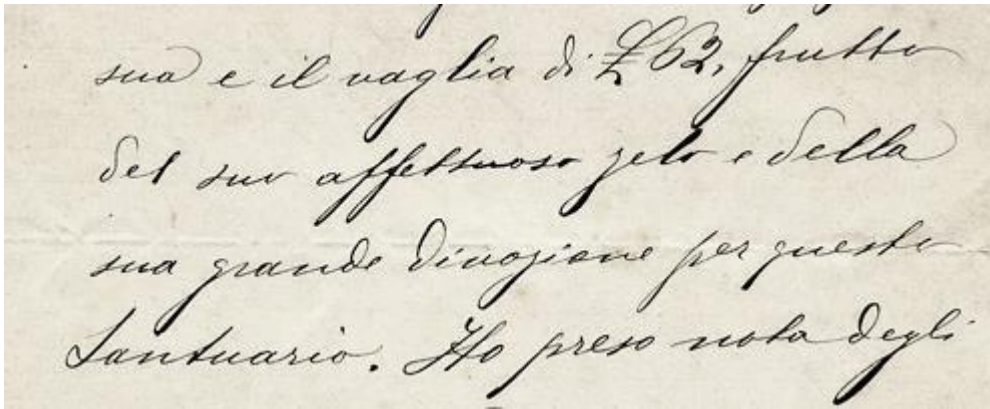 sua e il vaglia di £ 62, frutto
del suo affettuoso zelo e della
sua grande divozione per questo
Santuario. Ho preso nota degli